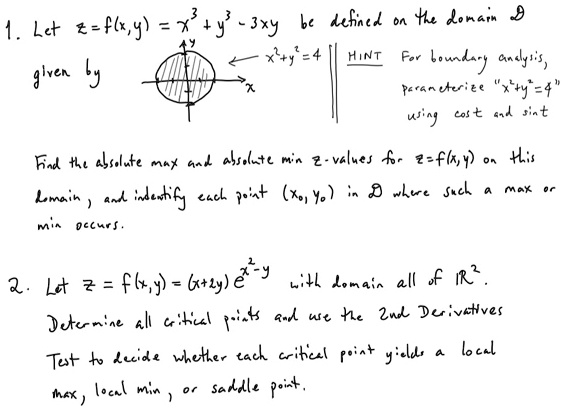 1. Let z = f(x,y) = x³ + y³ - 3xy be defined on the domain D
given by
y
x
x²+y²=4
HINT For boundary analysis,
parameterize "x²+y²=4"
using cos t and sin t
Find the absolute max and absolute min z-values for z=f(x,y) on this
domain, and indentify each point (x₀, y₀) in D where such a max or
min occurs.
2. Let z = f(x,y) = (x+2y) e^(x²-y) with domain all of ℝ².
Determine all critical points and use the 2nd Derivatives
Test to decide whether each critical point yields a local
max, local min, or saddle point.